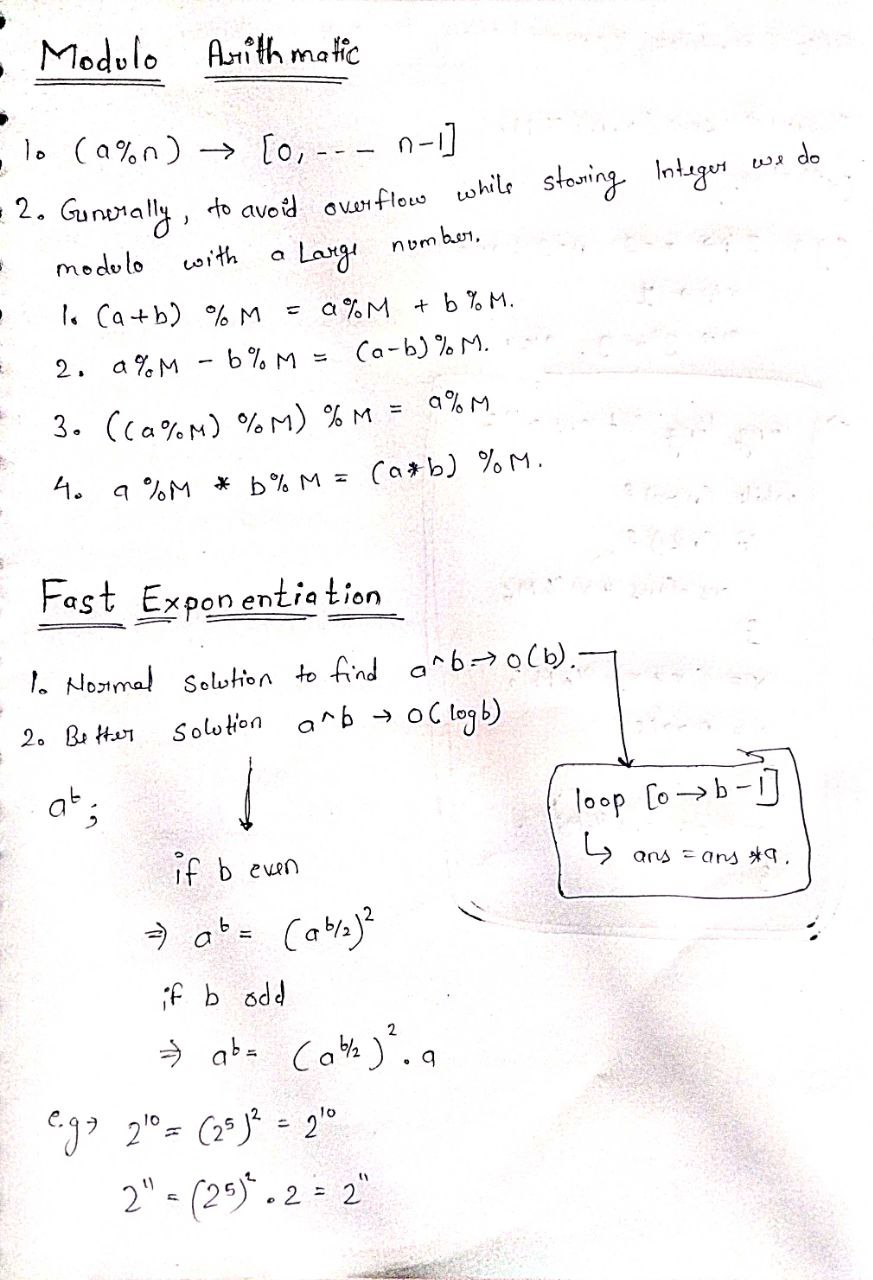 Modulo Arithmatic
1. (a%n) → [0, --- n-1]
2. Generally, to avoid overflow while storing Integer we do
modulo with a Large number.
1. (a+b) % M = a%M + b%M.
2. a%M - b%M = (a-b)%M.
3. ((a%M) %M) % M = a%M
4. a%M * b%M = (a*b) %M.
Fast Exponentiation
1. Normal Solution to find a^b → O(b).
2. Better Solution a^b → O(logb)
loop [0 → b-1]
↳ ans = ans *a.
aᵇ;
if b even
⇒ aᵇ = (a^b/2)²
if b odd
⇒ aᵇ = (a^b/2)² . a
e.g → 2¹⁰ = (2⁵)² = 2¹⁰
2¹¹ = (2⁵)² . 2 = 2¹¹